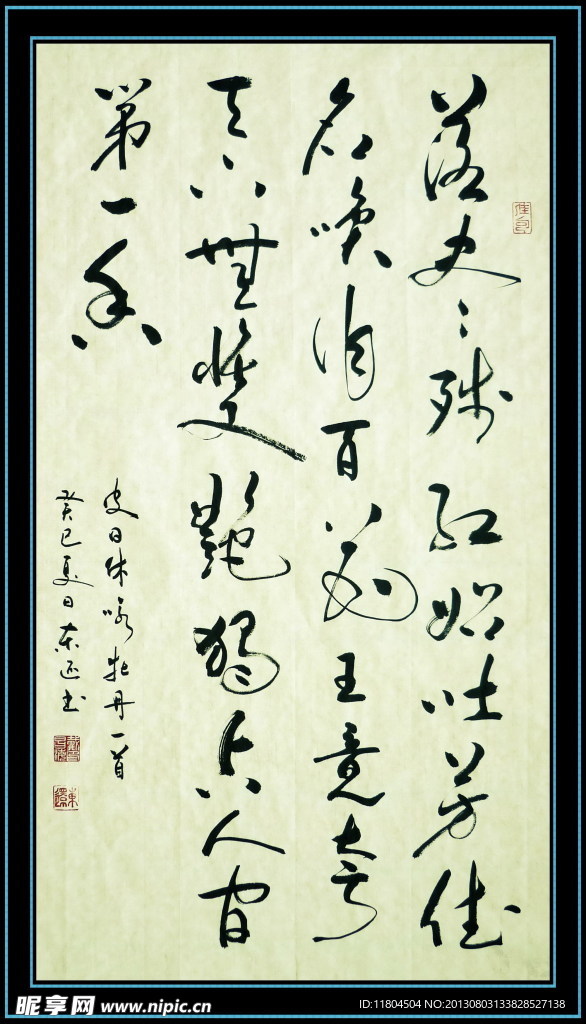 落尽残红始吐芳佳
名唤作百花王竞夸
天下無雙艷獨占人间
第一香
皮日休咏牡丹一首
癸巳夏日东还书
昵享网 www.nipic.cn
ID:11804504 NO:20130803133828527138